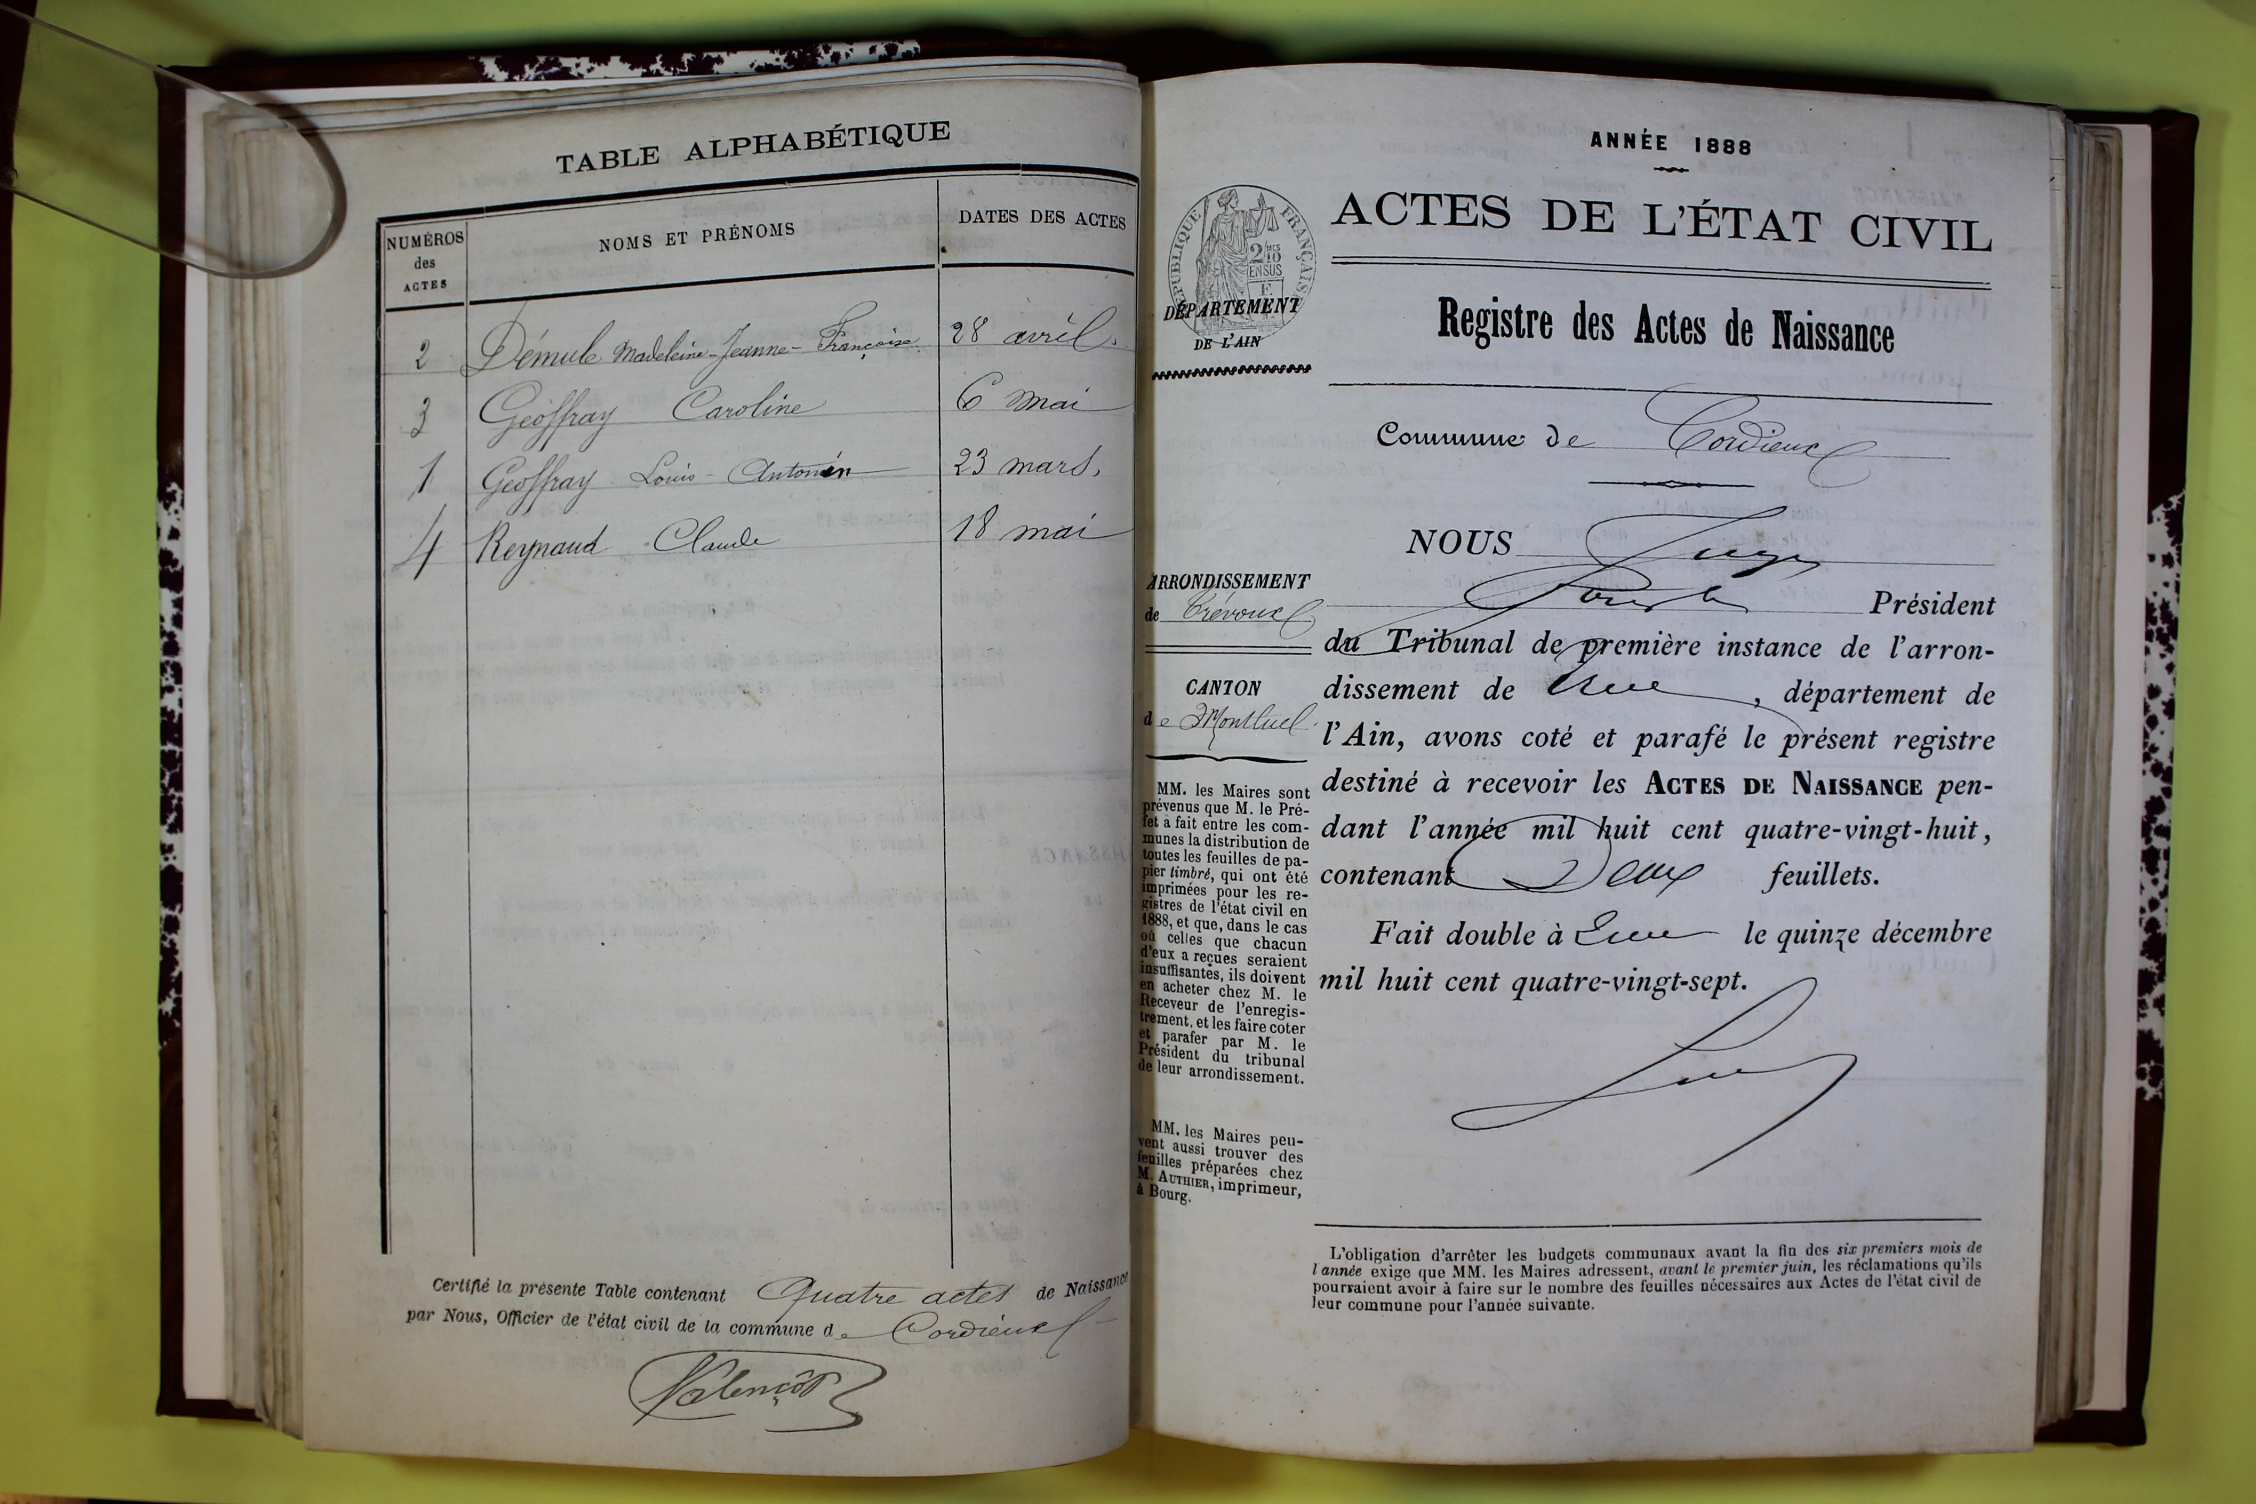 TABLE ALPHABÉTIQUE
NUMÉROS des ACTES
NOMS ET PRÉNOMS
DATES DES ACTES
2 Démule Madeleine-Jeanne-Françoise 28 avril.
3 Geoffray Caroline 6 mai
1 Geoffray Louis-Antonin 23 mars.
4 Reynaud Claude 18 mai
Certifié la présente Table contenant Quatre actes de Naissance
par Nous, Officier de l'état civil de la commune de Cordieux
Valençot
ANNÉE 1888
ACTES DE L'ÉTAT CIVIL
RÉPUBLIQUE FRANÇAISE
2/10 EN SUS
DÉPARTEMENT
DE L'AIN
Registre des Actes de Naissance
Commune de Cordieux
NOUS Juge
Président
ARRONDISSEMENT
de Trévoux
CANTON
de Montluel
du Tribunal de première instance de l'arron-
dissement de , département de
l'Ain, avons coté et parafé le présent registre
destiné à recevoir les ACTES DE NAISSANCE pen-
dant l'année mil huit cent quatre-vingt-huit,
contenant Deux feuillets.
Fait double à le quinze décembre
mil huit cent quatre-vingt-sept.
MM. les Maires sont
prévenus que M. le Pré-
fet a fait entre les com-
munes la distribution de
toutes les feuilles de pa-
pier timbré, qui ont été
imprimées pour les re-
gistres de l'état civil en
1888, et que, dans le cas
où celles que chacun
d'eux a reçues seraient
insuffisantes, ils doivent
en acheter chez M. le
Receveur de l'enregis-
trement, et les faire coter
et parafer par M. le
Président du tribunal
de leur arrondissement.
MM. les Maires peu-
vent aussi trouver des
feuilles préparées chez
M. AUTHIER, imprimeur,
à Bourg.
L'obligation d'arrêter les budgets communaux avant la fin des six premiers mois de
l'année exige que MM. les Maires adressent, avant le premier juin, les réclamations qu'ils
pourraient avoir à faire sur le nombre des feuilles nécessaires aux Actes de l'état civil de
leur commune pour l'année suivante.